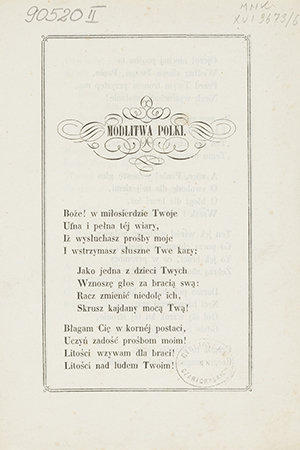 90520 II
XVI 3673/6
MODLITWA POLKI.
Boże! w miłosierdzie Twoje
Ufna i pełna téj wiary,
Iż wysłuchasz prośby moje
I wstrzymasz słuszne Twe kary;
Jako jedna z dzieci Twych
Wznoszę głos za bracią swą:
Racz zmienić niedolę ich,
Skrusz kajdany mocą Twą!
Błagam Cię w kornéj postaci,
Uczyń zadość prośbom moim!
Litości wzywam dla braci!
Litości nad ludem Twoim!